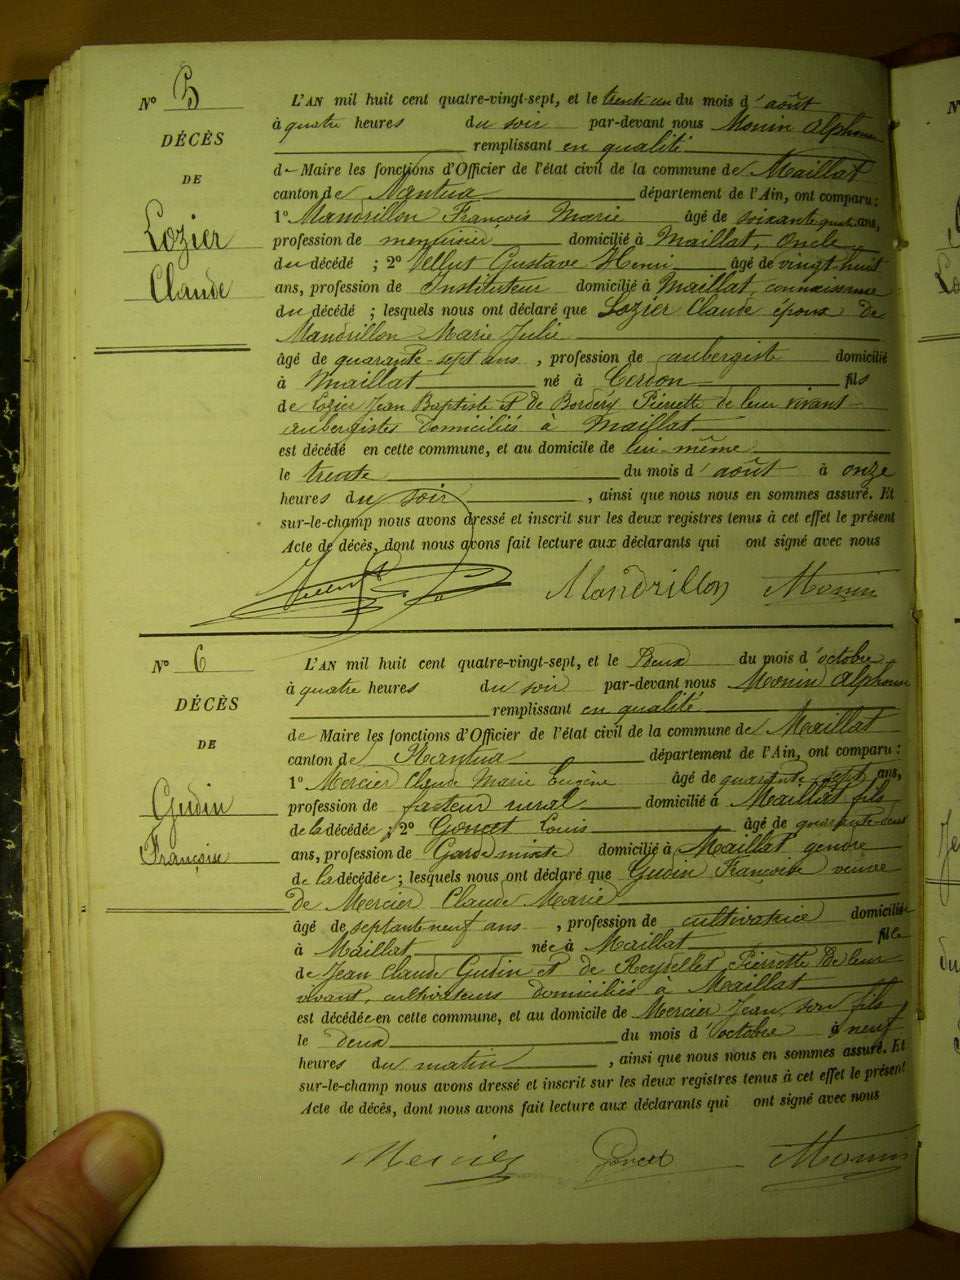 N° 5
DÉCÈS
DE
Lozier
Claude
L'AN mil huit cent quatre-vingt-sept, et le trente un du mois d'août
à quatre heures du soir par-devant nous Monin Alphonse
remplissant en qualité
de Maire les fonctions d'Officier de l'état civil de la commune de Maillat
canton de Nantua département de l'Ain, ont comparu :
1° Mandrillon François Marie âgé de soixante quatre ans,
profession de menuisier domicilié à Maillat, oncle
du décédé ; 2° Vellut Gustave Henri âgé de vingt-huit
ans, profession de Instituteur domicilié à Maillat, connaissance
du décédé ; lesquels nous ont déclaré que Lozier Claude époux de
Mandrillon Marie Julie
âgé de quarante-sept ans , profession de aubergiste domicilié
à Maillat né à Cerdon fils
de Lozier Jean Baptiste et de Pierrette de leur vivant
aubergistes domiciliés à Maillat
est décédé en cette commune, et au domicile de lui-même
le trente du mois d'août à onze
heures du soir , ainsi que nous nous en sommes assuré. Et
sur-le-champ nous avons dressé et inscrit sur les deux registres tenus à cet effet le présent
Acte de décès, dont nous avons fait lecture aux déclarants qui ont signé avec nous
Vellut Mandrillon Monin
N° 6
DÉCÈS
DE
Gudin
Françoise
L'AN mil huit cent quatre-vingt-sept, et le Deux du mois d'octobre
à quatre heures du soir par-devant nous Monin Alphonse
remplissant en qualité
de Maire les fonctions d'Officier de l'état civil de la commune de Maillat
canton de Nantua département de l'Ain, ont comparu :
1° Mercier Claude Marie Eugène âgé de quarante sept ans,
profession de facteur rural domicilié à Maillat fils
de la décédée ; 2° Goncet Louis âgé de quarante-deux
ans, profession de Garde mixte domicilié à Maillat gendre
de la décédée ; lesquels nous ont déclaré que Gudin Françoise veuve
de Mercier Claude Marie
âgé de septante neuf ans , profession de cultivatrice domiciliée
à Maillat née à Maillat fille
de Jean Claude Gudin et de Reydellet Pierrette de leur
vivant, cultivateurs domiciliés à Maillat
est décédée en cette commune, et au domicile de Mercier Jean, son fils
le deux du mois d'octobre à neuf
heures du matin , ainsi que nous nous en sommes assuré. Et
sur-le-champ nous avons dressé et inscrit sur les deux registres tenus à cet effet le présent
Acte de décès, dont nous avons fait lecture aux déclarants qui ont signé avec nous
Mercier Goncet Monin